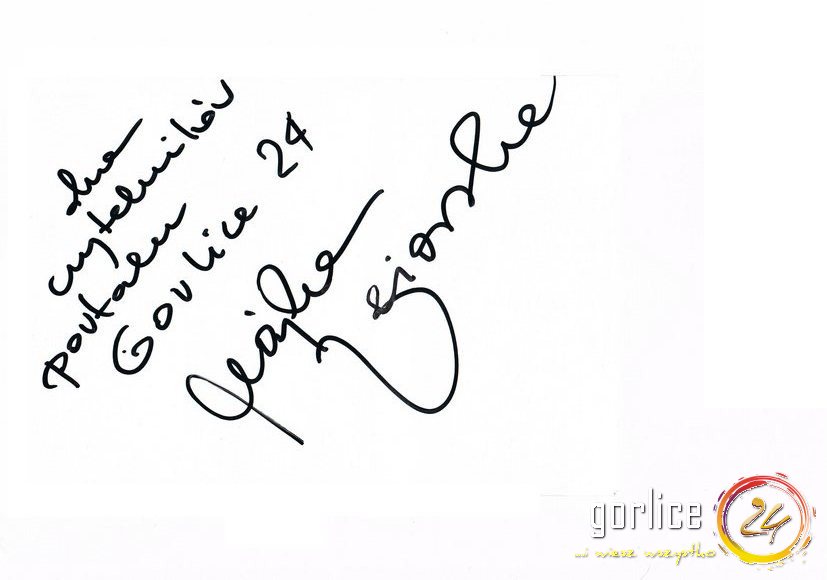 dla
czytelników
portalu
Gorlice 24
Majka
Jeżowska
gorlice 24
...i wiesz wszystko